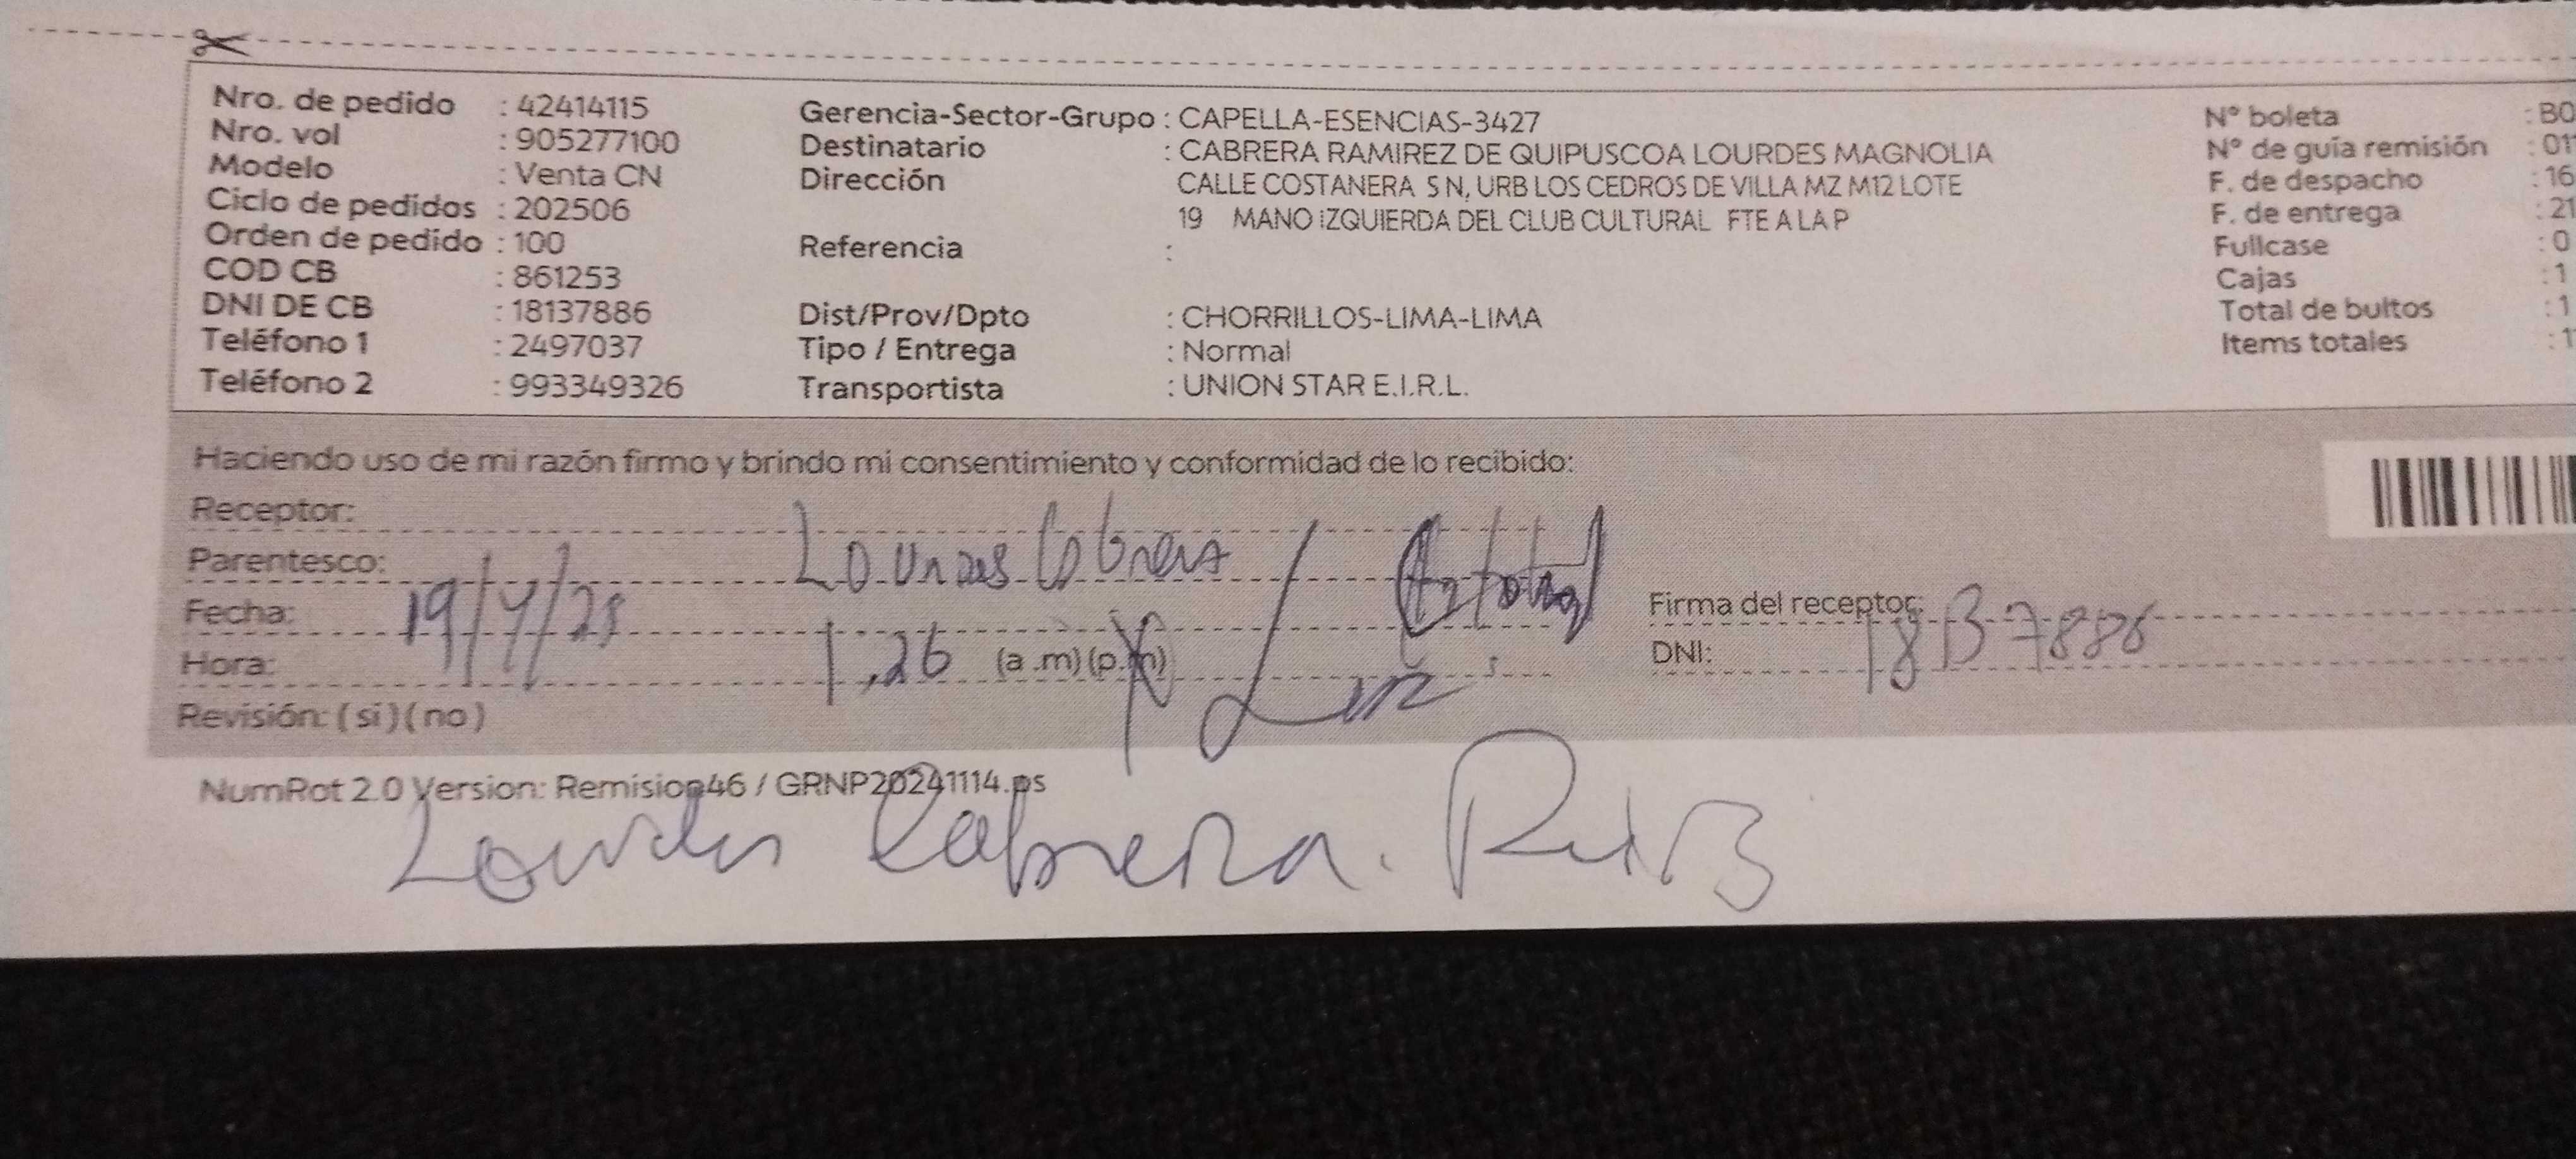 Nro. de pedido : 42414115
Nro. vol : 905277100
Modelo : Venta CN
Ciclo de pedidos : 202506
Orden de pedido : 100
COD CB : 861253
DNI DE CB : 18137886
Teléfono 1 : 2497037
Teléfono 2 : 993349326
Gerencia-Sector-Grupo : CAPELLA-ESENCIAS-3427
Destinatario : CABRERA RAMIREZ DE QUIPUSCOA LOURDES MAGNOLIA
Dirección CALLE COSTANERA S N, URB LOS CEDROS DE VILLA MZ M12 LOTE
19 MANO IZQUIERDA DEL CLUB CULTURAL FTE A LA P
Referencia :
Dist/Prov/Dpto : CHORRILLOS-LIMA-LIMA
Tipo / Entrega : Normal
Transportista : UNION STAR E.I.R.L.
Nº boleta : B0
Nº de guía remisión : 01
F. de despacho : 16
F. de entrega : 21
Fullcase : 0
Cajas : 1
Total de bultos : 1
Items totales : 1
Haciendo uso de mi razón firmo y brindo mi consentimiento y conformidad de lo recibido:
Receptor:
Parentesco: Lourdes Cabrera
Fecha: 19/4/25
Firma del receptor:
Hora: 1,26 (a .m) (p.m)
DNI: 18137886
Revisión: ( si ) ( no )
NumRot 2.0 Version: Remision46 / GRNP20241114.ps
Lourdes Cabrera.